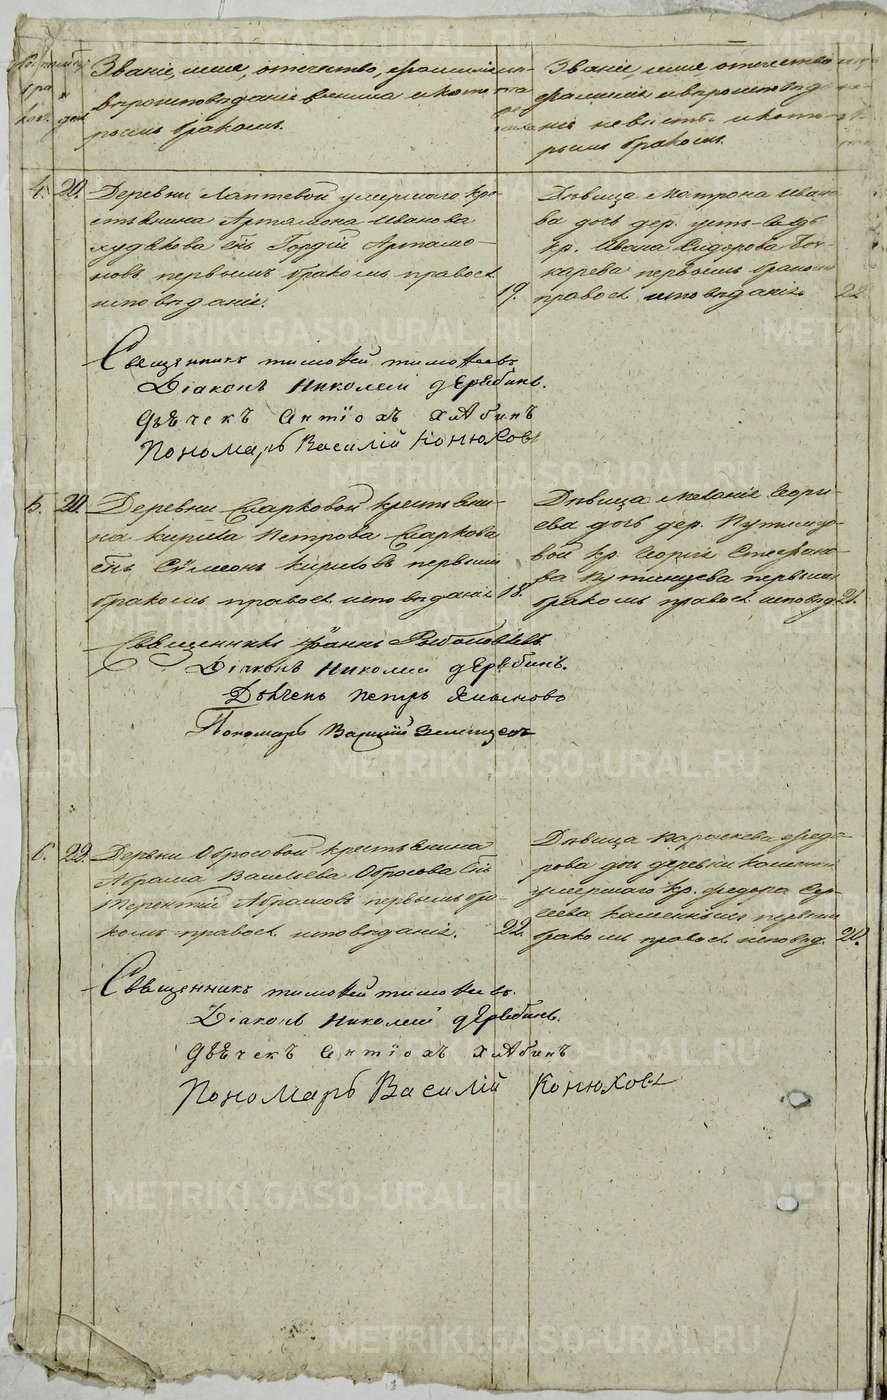 Званіе, имя, отечество, фамилія и
вѣроисповѣданіе жениха и кото
рымъ бракомъ.
Званіе имя отечество
фамилія и вѣроисповѣд
ніе невѣсты и кото-
рымъ бракомъ.
4. 20. Деревни Лаптевой умершаго кре
стьянина Артамона Иванова
Худякова снъ Гордій Артамо-
новъ первымъ бракомъ правосл
исповѣданіе. 19.
Дѣвица Матрона Ивано
ва дочь дер. Усть-
кр. Ивана Сидорова Боч
карева первымъ бракомъ
правосл исповѣданіе 22
Священникъ Тимоѳей Тимоѳеевъ
Діаконъ Николай Дерябинъ.
Дьячекъ Антіохъ Хлябинъ
Пономарь Василій Конюховъ
5. 20. Деревни Старковой крестьяни-
на Кирила Петрова Старкова
снъ Сѵмеонъ Кириловъ первымъ
бракомъ правосл исповѣданіе 18.
Дѣвица Меланія Геори-
ева дочь дер. Путилово-
вой кр. Георгія Стефано-
ва Путинцева первымъ
бракомъ правосл исповѣд 21.
Священникъ Іоаннъ Рыболовлевъ
Діаконъ Николай Дерябинъ.
Дьячекъ Петръ
Пономарь Василій
6. 22. Деревни Обросовой крестьянина
Абрама Васильева Обросова сн
Терентій Абрамовъ первымъ бра
комъ правосл исповѣданіе. 22.
Дѣвица Параскева Федо-
рова дочь деревни
умершаго кр. Федора Сер-
геева первымъ
бракомъ правосл исповѣд. 20.
Священникъ Тимоѳей Тимоѳеевъ.
Діаконъ Николай Дерябинъ.
Дьячекъ Антіохъ Хлябинъ
Пономарь Василій Конюховъ
METRIKI.GASO-URAL.RU